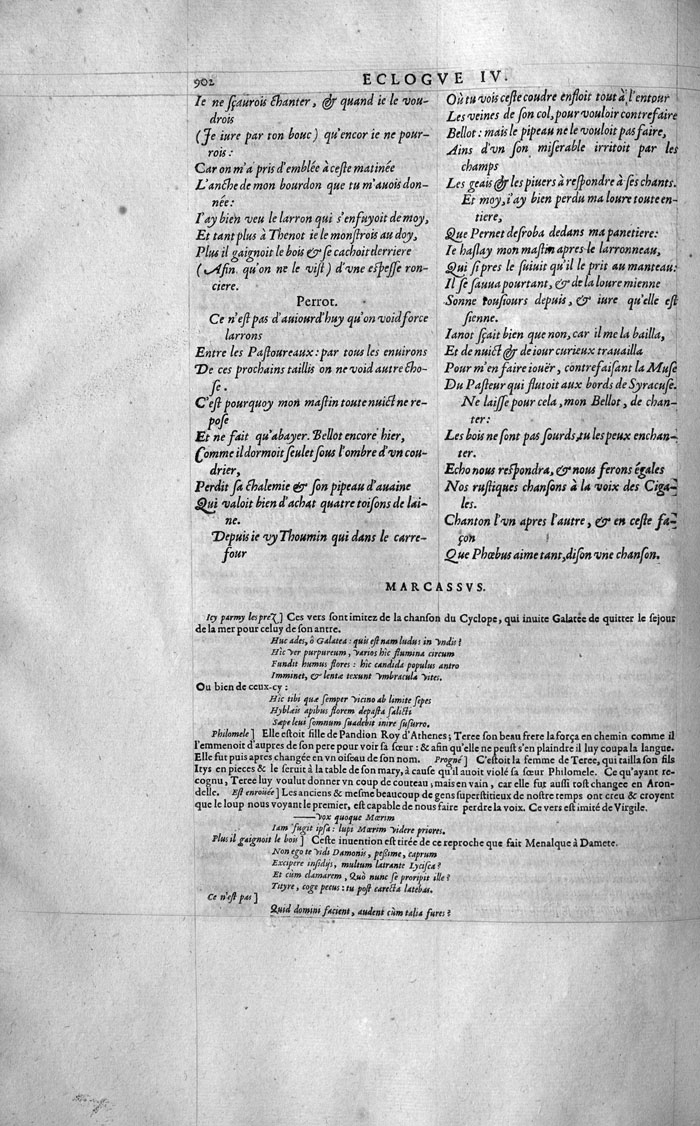 902
ECLOGVE IV.
Ie ne sçaurois chanter, & quand ie le vou-
drois
(Je iure par ton bouc) qu'encor ie ne pour-
rois:
Car on m'a pris d'emblée à ceste matinée
L'anche de mon bourdon que tu m'auois don-
née:
I'ay bien veu le larron qui s'enfuyoit de moy,
Et tant plus à Thenot ie le monstrois au doy,
Plus il gaignoit le bois & se cachoit derriere
(Afin qu'on ne le vist) d'vne espesse ron-
ciere.
Perrot.
Ce n'est pas d'auiourd'huy qu'on void force
larrons
Entre les Pastoureaux: par tous les enuirons
De ces prochains taillis on ne void autre cho-
se.
C'est pourquoy mon mastin toute nuict ne re-
pose
Et ne fait qu'abayer. Bellot encore hier,
Comme il dormoit seulet sous l'ombre d'vn cou-
drier,
Perdit sa chalemie & son pipeau d'auaine
Qui valoit bien d'achat quatre toisons de lai-
ne.
Depuis ie vy Thoumin qui dans le carre-
four
Où tu vois ceste coudre enfloit tout à l'entour
Les veines de son col, pour vouloir contrefaire
Bellot: mais le pipeau ne le vouloit pas faire,
Ains d'vn son miserable irritoit par les
champs
Les geais & les piuers à respondre à ses chants.
Et moy, i'ay bien perdu ma loure toute en-
tiere,
Que Pernet desroba dedans ma panetiere:
Ie haslay mon mastin apres le larronneau,
Qui si pres le suiuit qu'il le prit au manteau:
Il se sauua pourtant, & de la loure mienne
Sonne tousiours depuis, & iure qu'elle est
sienne.
Ianot sçait bien que non, car il me la bailla,
Et de nuict & de iour curieux trauailla
Pour m'en faire iouër, contrefaisant la Muse
Du Pasteur qui flutoit aux bords de Syracuse.
Ne laisse pour cela, mon Bellot, de chan-
ter:
Les bois ne sont pas sourds, tu les peux enchan-
ter.
Echo nous respondra, & nous ferons égales
Nos rustiques chansons à la voix des Ciga-
les.
Chanton l'vn apres l'autre, & en ceste fa-
çon
Que Phœbus aime tant, dison vne chanson.
MARCASSVS.
Icy parmy les prez] Ces vers sont imitez de la chanson du Cyclope, qui inuite Galatée de quitter le sejour
de la mer pour celuy de son antre.
Huc ades, ô Galatea: quis est nam ludus in vndis?
Hic ver purpureum, varios hîc flumina circum
Fundit humus flores: hîc candida populus antro
Imminet, & lentæ texunt vmbracula vites.
Ou bien de ceux-cy:
Hîc tibi quæ semper vicino ab limite sepes
Hyblæis apibus florem depasta salicti
Sæpe leui somnum suadebit inire susurro.
Philomele] Elle estoit fille de Pandion Roy d'Athenes; Teree son beau frere la força en chemin comme il
l'emmenoit d'aupres de son pere pour voir sa sœur: & afin qu'elle ne peust s'en plaindre il luy coupa la langue.
Elle fut puis apres changée en vn oiseau de son nom. Progné] C'estoit la femme de Teree, qui tailla son fils
Itys en pieces & le seruit à la table de son mary, à cause qu'il auoit violé sa sœur Philomele. Ce qu'ayant re-
cognu, Teree luy voulut donner vn coup de couteau, mais en vain, car elle fut aussi tost changée en Aron-
delle. Est enrouée] Les anciens & mesme beaucoup de gens superstitieux de nostre temps ont creu & croyent
que le loup nous voyant le premier, est capable de nous faire perdre la voix. Ce vers est imité de Virgile.
——vox quoque Mœrim
Iam fugit ipsa: lupi Mœrim videre priores.
Plus il gaignoit le bois] Ceste inuention est tirée de ce reproche que fait Menalque à Damete.
Non ego te vidi Damonis, pessime, caprum
Excipere insidijs, multum latrante Lycisca?
Et cùm clamarem, Quò nunc se proripit ille?
Tityre, coge pecus: tu post carecta latebas.
Ce n'est pas]
Quid domini facient, audent cùm talia fures?